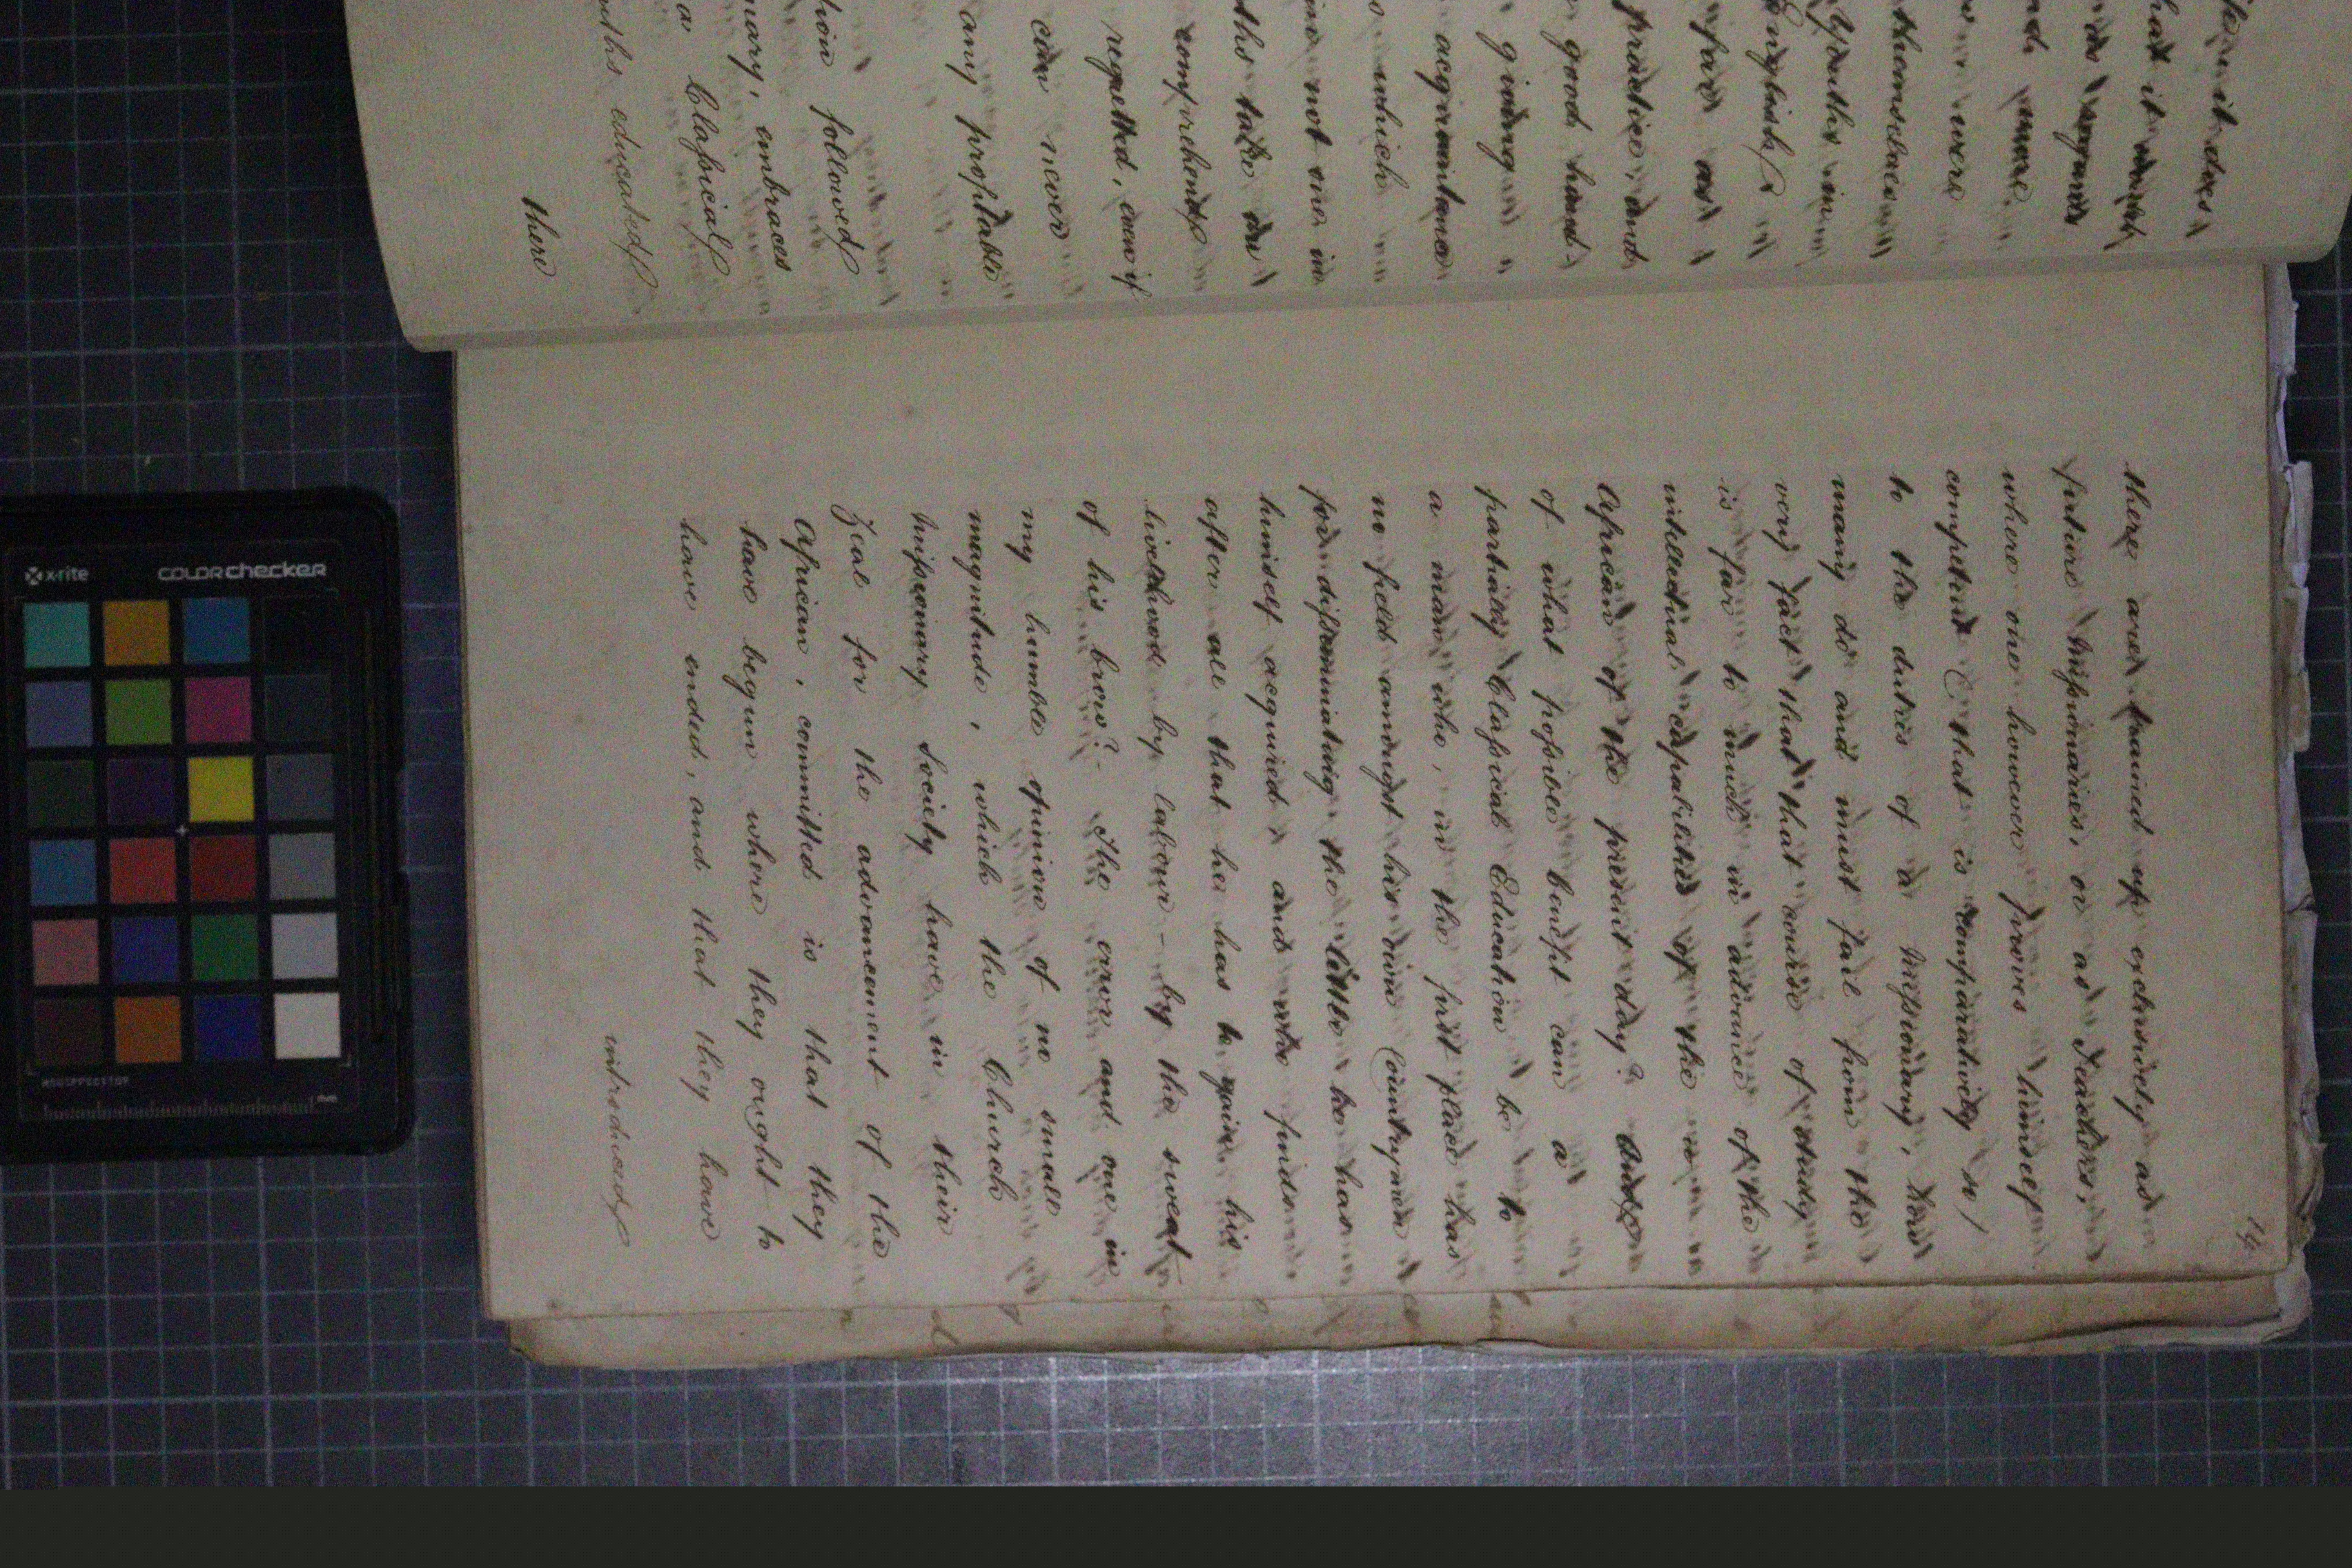 it does
hat it
regards
more
were
themselves
Youths in
English
far as
practice, and
good hand-
giving
acquaintance
which
not one in
take an
comprehends
regretted, even if
can never
any profitable
followed
embraces
a Classical
educated
there
14
there are trained up exclusively as
future Missionaries, or as Teachers,
where one however proves himself
competent (that is comparatively so)
to the duties of a Missionary, how
many do and must fail from the
very fact that that course of study
is far to much in advance of the
intellectual capabilities of the
African of the present day? And
of what possible benefit can a
partially Classical Education be to
a man who, in the first place has
no field amongst his own Countrymen
for disseminating the little he has
himself acquired, and who finds
after all that he has to gain his
livelihood by labour - by the sweat
of his brow? - The error and one in
my humble opinion of no small
magnitude, which the Church
Missionary Society have in their
Zeal for the advancement of the
African, committed is that they
have begun where they ought to
have ended, and that they have
introduced